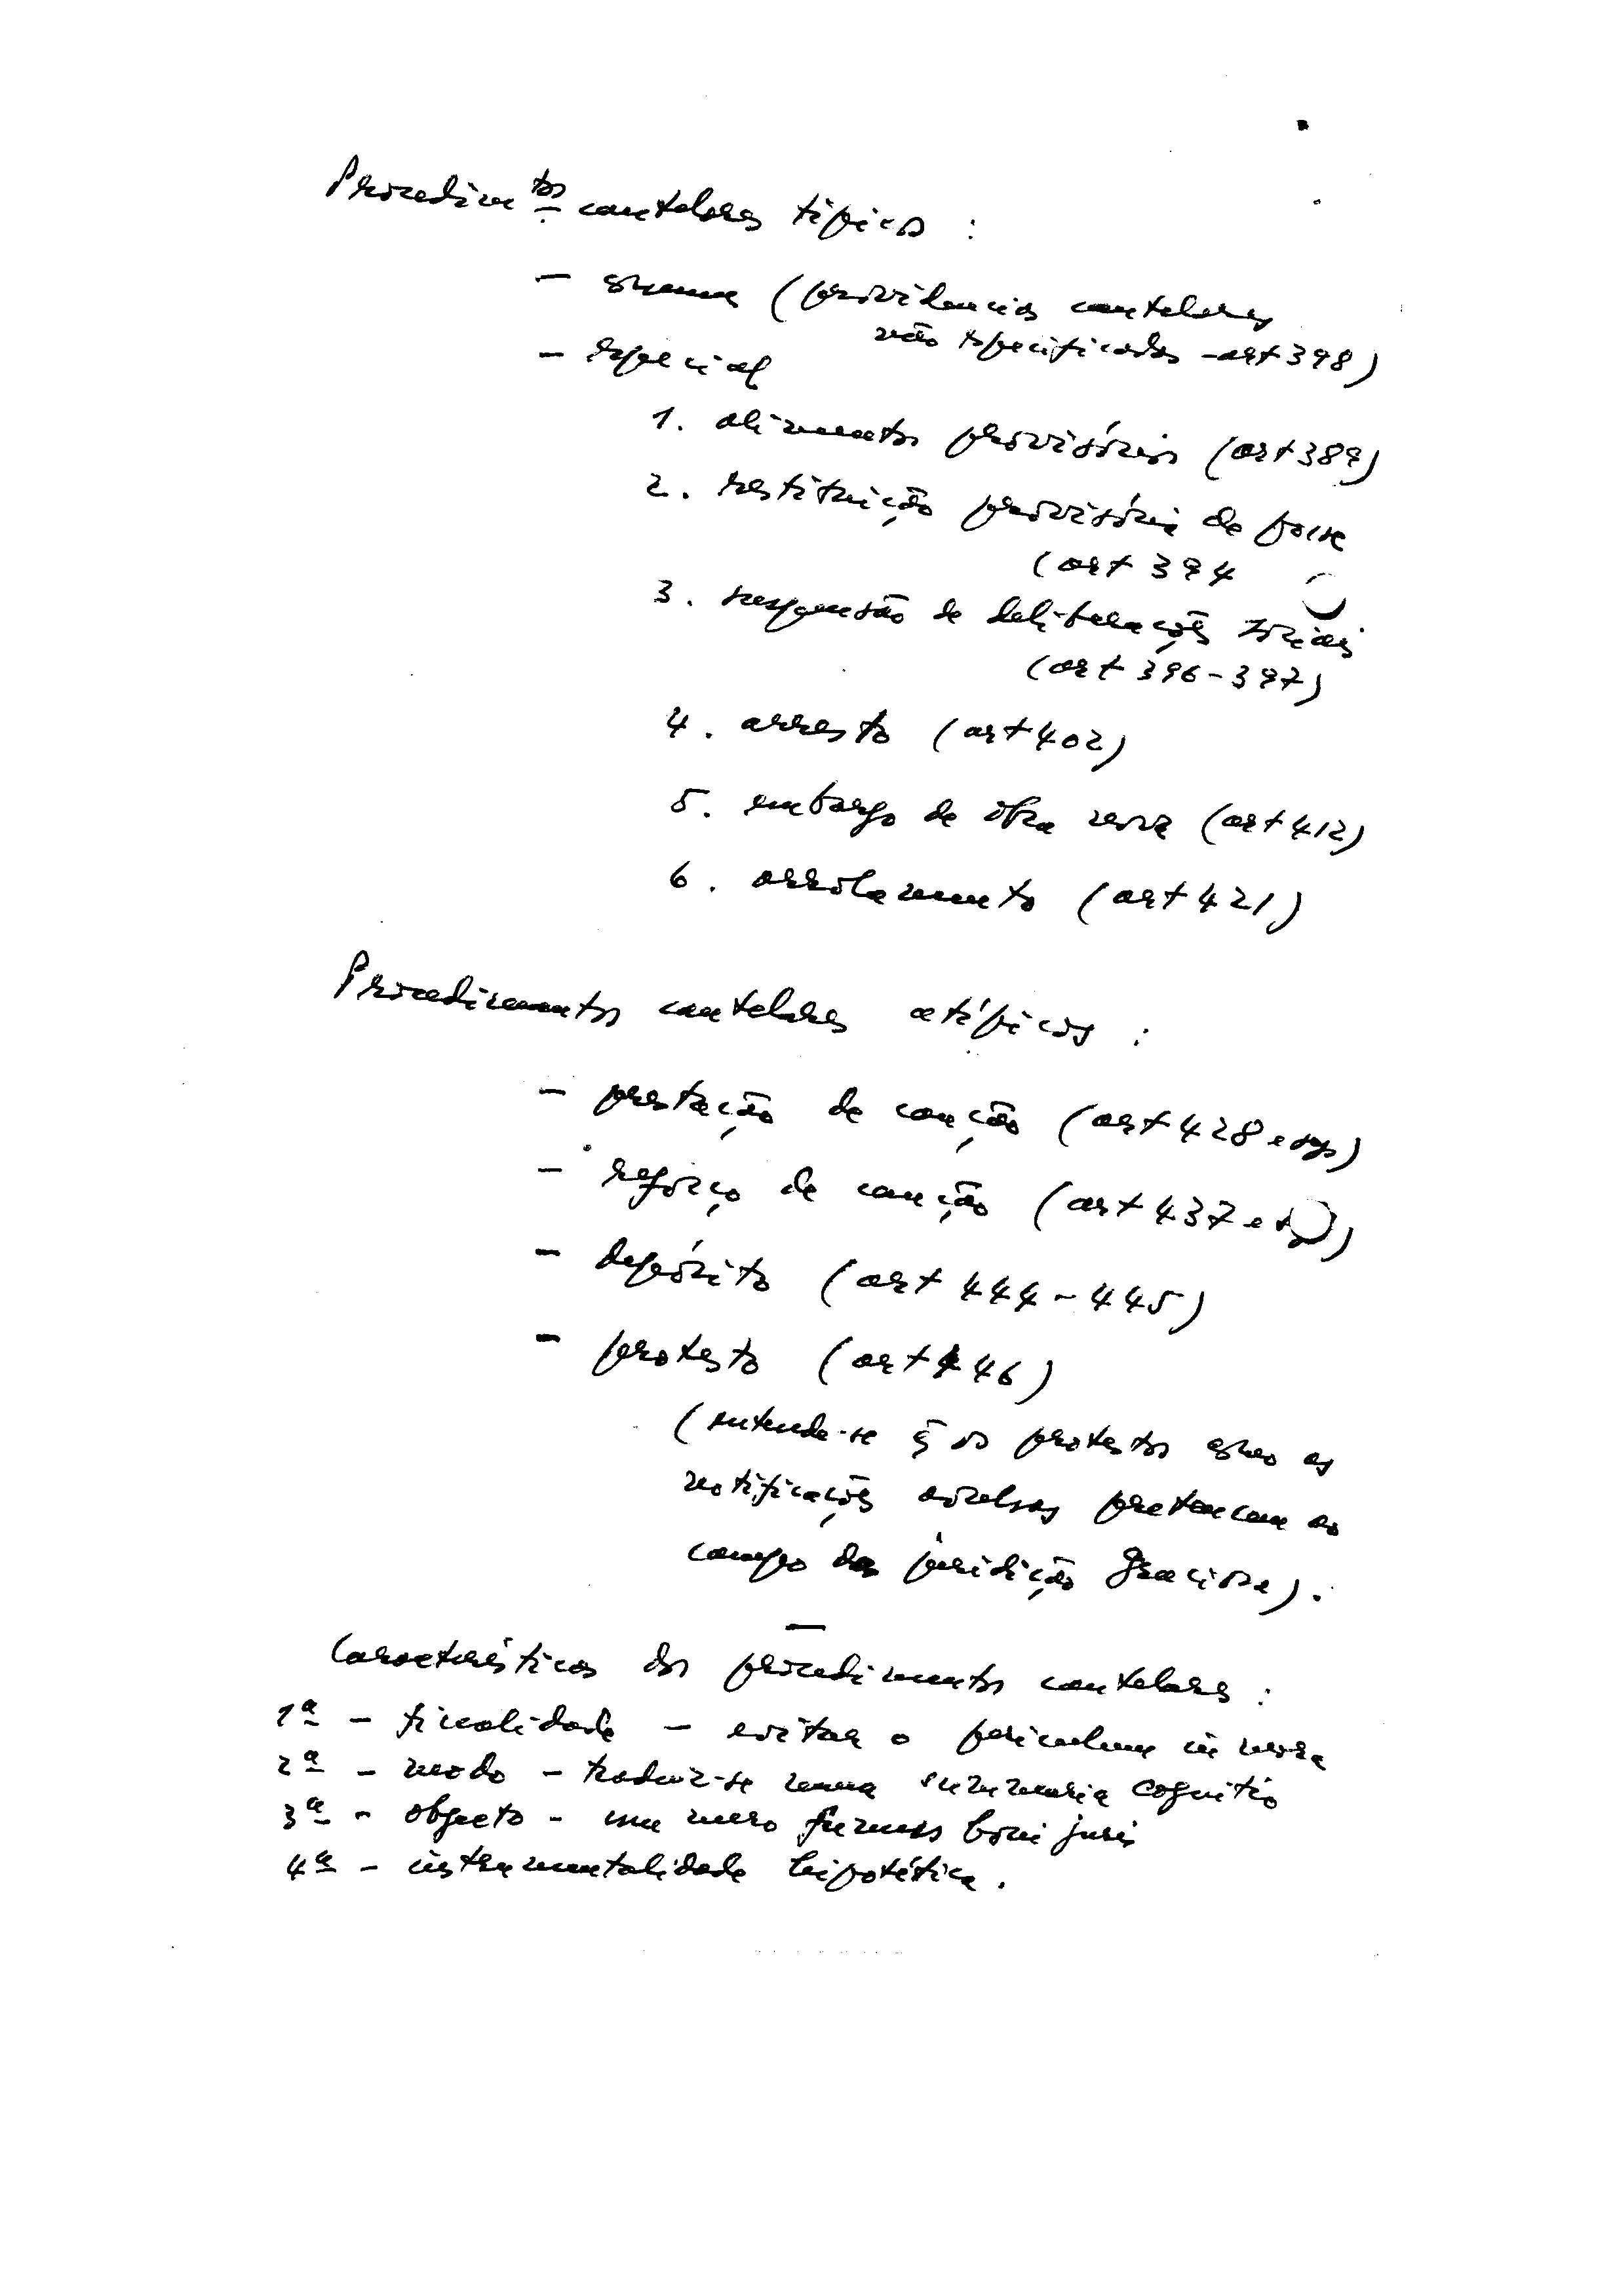 Procedimtos cautelares típicos :
- comum (providências cautelares
não especificadas - art 398)
- especial
1. alimentos provisórios (art 389)
2. restituição provisória de posse
(art 394
3. suspensão de deliberações sociais
(art 396-397)
4. arresto (art 402)
5. embargo de obra nova (art 412)
6. arrolamento (art 421)
Procedimentos cautelares atípicos :
- prestação de caução (art 428 e segs)
- reforço de caução (art 437 e s)
- depósito (art 444-445)
- protesto (art 446)
(entende-se q̃ os protestos como as
notificações avulsas pertencem ao
campo da juridição graciosa).
Características dos procedimentos cautelares :
1ª - finalidade - evitar o periculum in mora
2ª - modo - traduz-se numa summaria cognitio
3ª - objecto - um mero fumus boni juris
4ª - instrumentalidade hipotética.